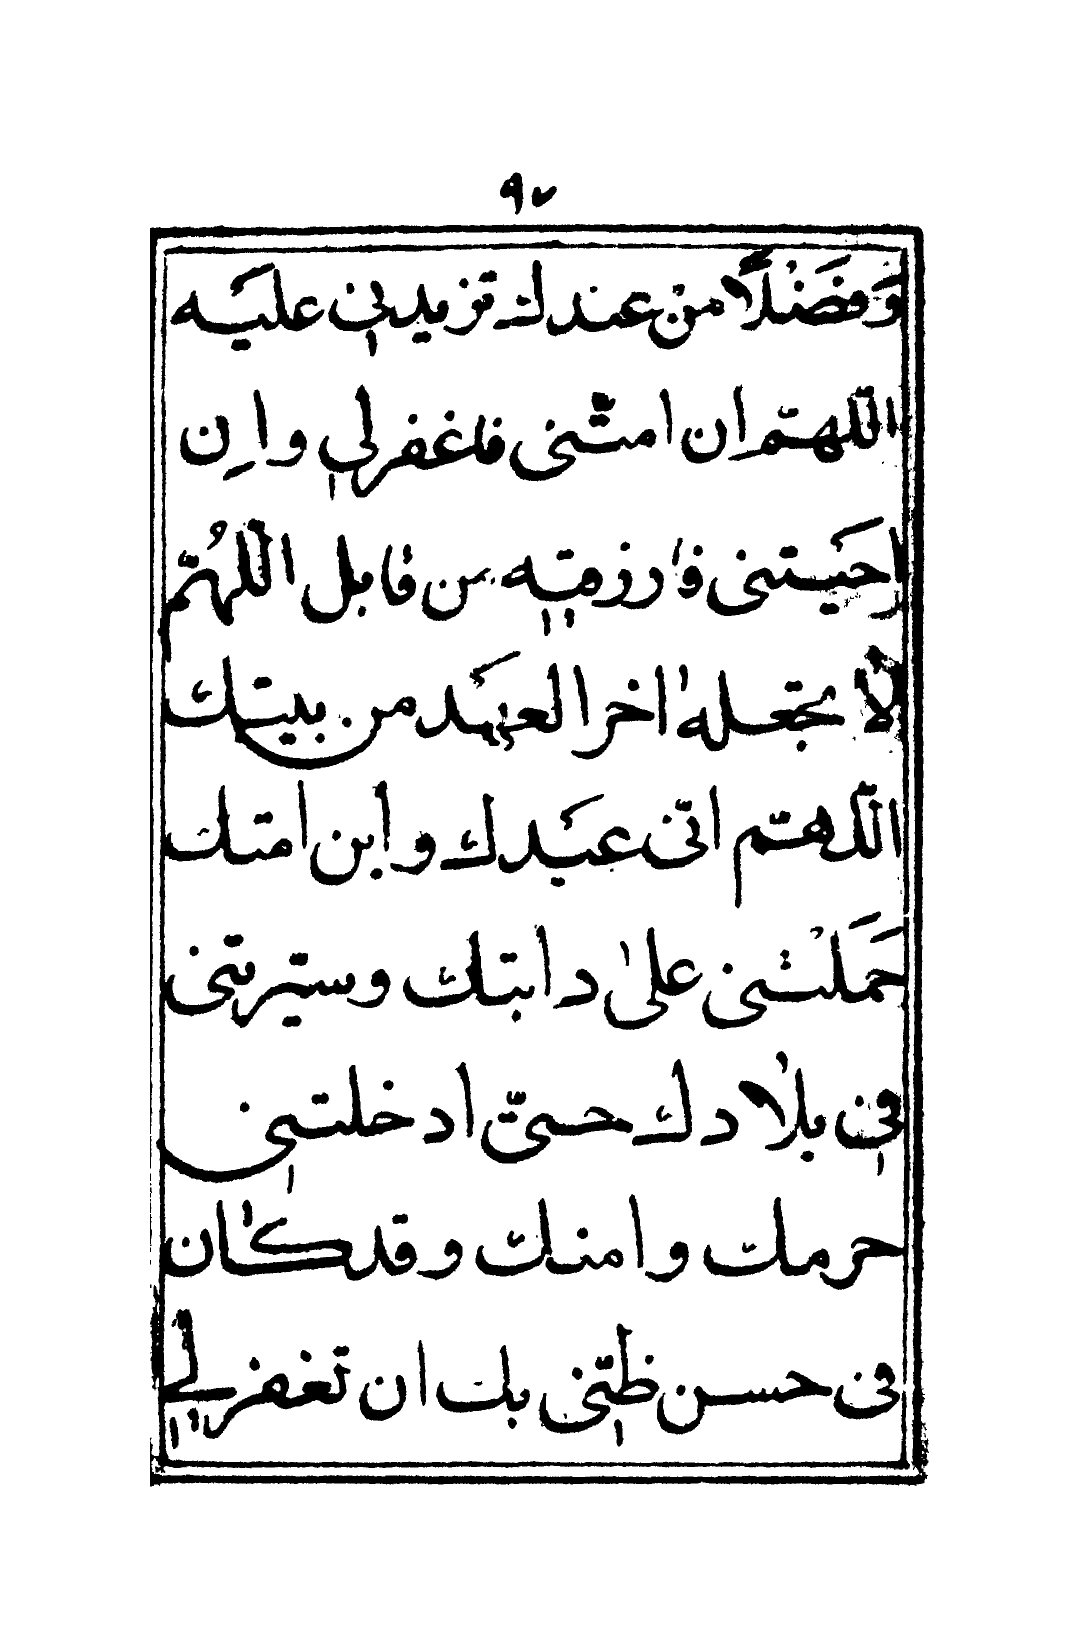 ٩٧
وَفَضْلًا من عندك تزيدنى عليه
اللّهمّ ان امتّنى فاغفرلى وان
احييتنى فارزقنيه من قابل اللهُمّ
لا تجعله اخر العهد من بيتك
اللّهمّ انّى عبدك وابن امتك
حَمَلْتنى على دابتك وسيّرتنى
فى بلادك حتىّ ادخلتنى
حرمك وامنك وقد كان
فى حسن ظنّى بك ان تغفرلى